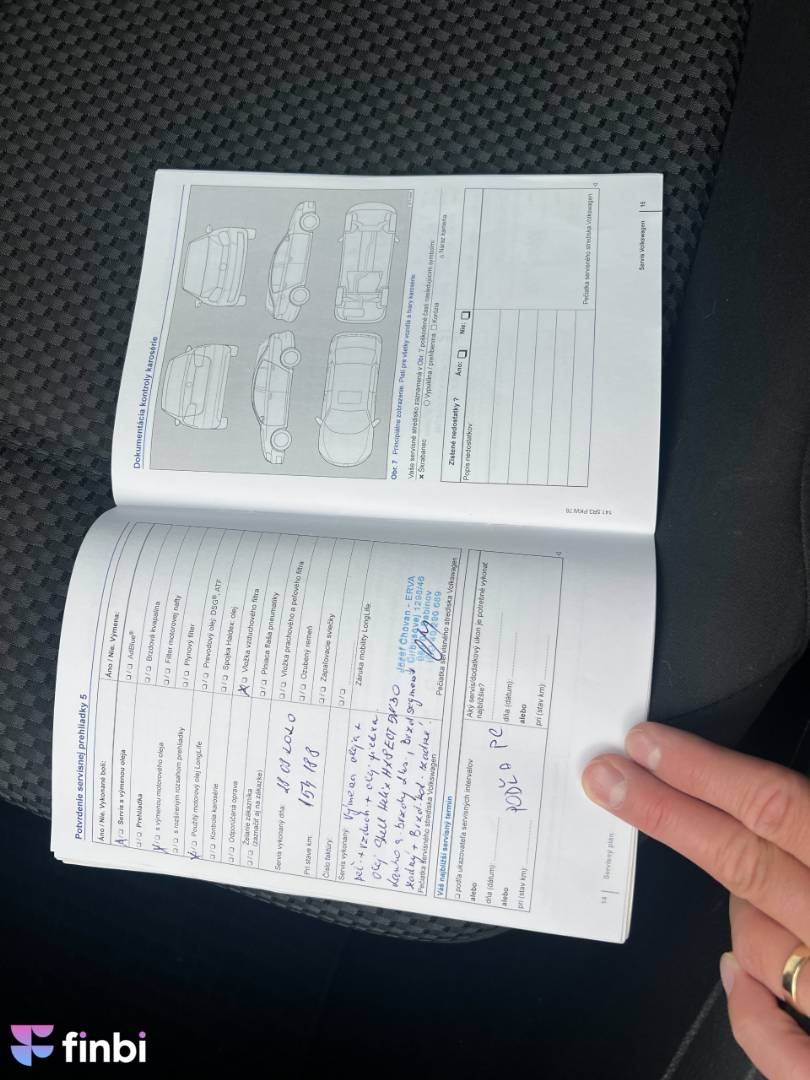 Potvrdenie servisnej prehliadky 5
Áno / Nie. Vykonané boli:
Servis s výmenou oleja
Prehliadka
s výmenou motorového oleja
s rozšíreným rozsahom prehliadky
Použitý motorový olej LongLife
Kontrola karosérie
Odporúčaná oprava
Želanie zákazníka
(zaznačiť aj na zákazke)
Servis vykonaný dňa: 28 08 2020
Pri stave km: 159 188
Číslo faktúry:
Servis vykonaný: Výmena oleja +
olej Shell Helix
Pečiatka servisného strediska Volkswagen
Áno / Nie. Výmena:
AdBlue®
Brzdová kvapalina
Filter motorovej nafty
Plynový filter
Prevodový olej: DSG®, ATF
Spojka Haldex: olej
Vložka vzduchového filtra
Plniaca fľaša pneumatiky
Vložka prachového a peľového filtra
Ozubený remeň
Zapaľovacie sviečky
Záruka mobility LongLife
Jozef Chovan - ERVA
1298/46
Pečiatka servisného strediska Volkswagen
Váš najbližší servisný termín
podľa ukazovateľa servisných intervalov
alebo
dňa (dátum):
alebo
pri (stav km)
PODĽA PC
Aký servis/dodatkový úkon je potrebné vykonať
najbližšie?
dňa (dátum):
alebo
pri (stav km)
14 Servisný plán
Dokumentácia kontroly karosérie
Obr. 7 Principiálne zobrazenie. Platí pre všetky vozidlá a tvary karosérie.
Vaše servisné stredisko zaznamená v Obr. 7 poškodené časti nasledujúcimi symbolmi:
x Škrabanec
○ Vypuklina / preliačenina
□ Korózia
△ Náraz kameňa
Zistené nedostatky ? Áno: Nie:
Popis nedostatkov:
Pečiatka servisného strediska Volkswagen
141.5R3.PKW.76
Servis Volkswagen 15
finbi